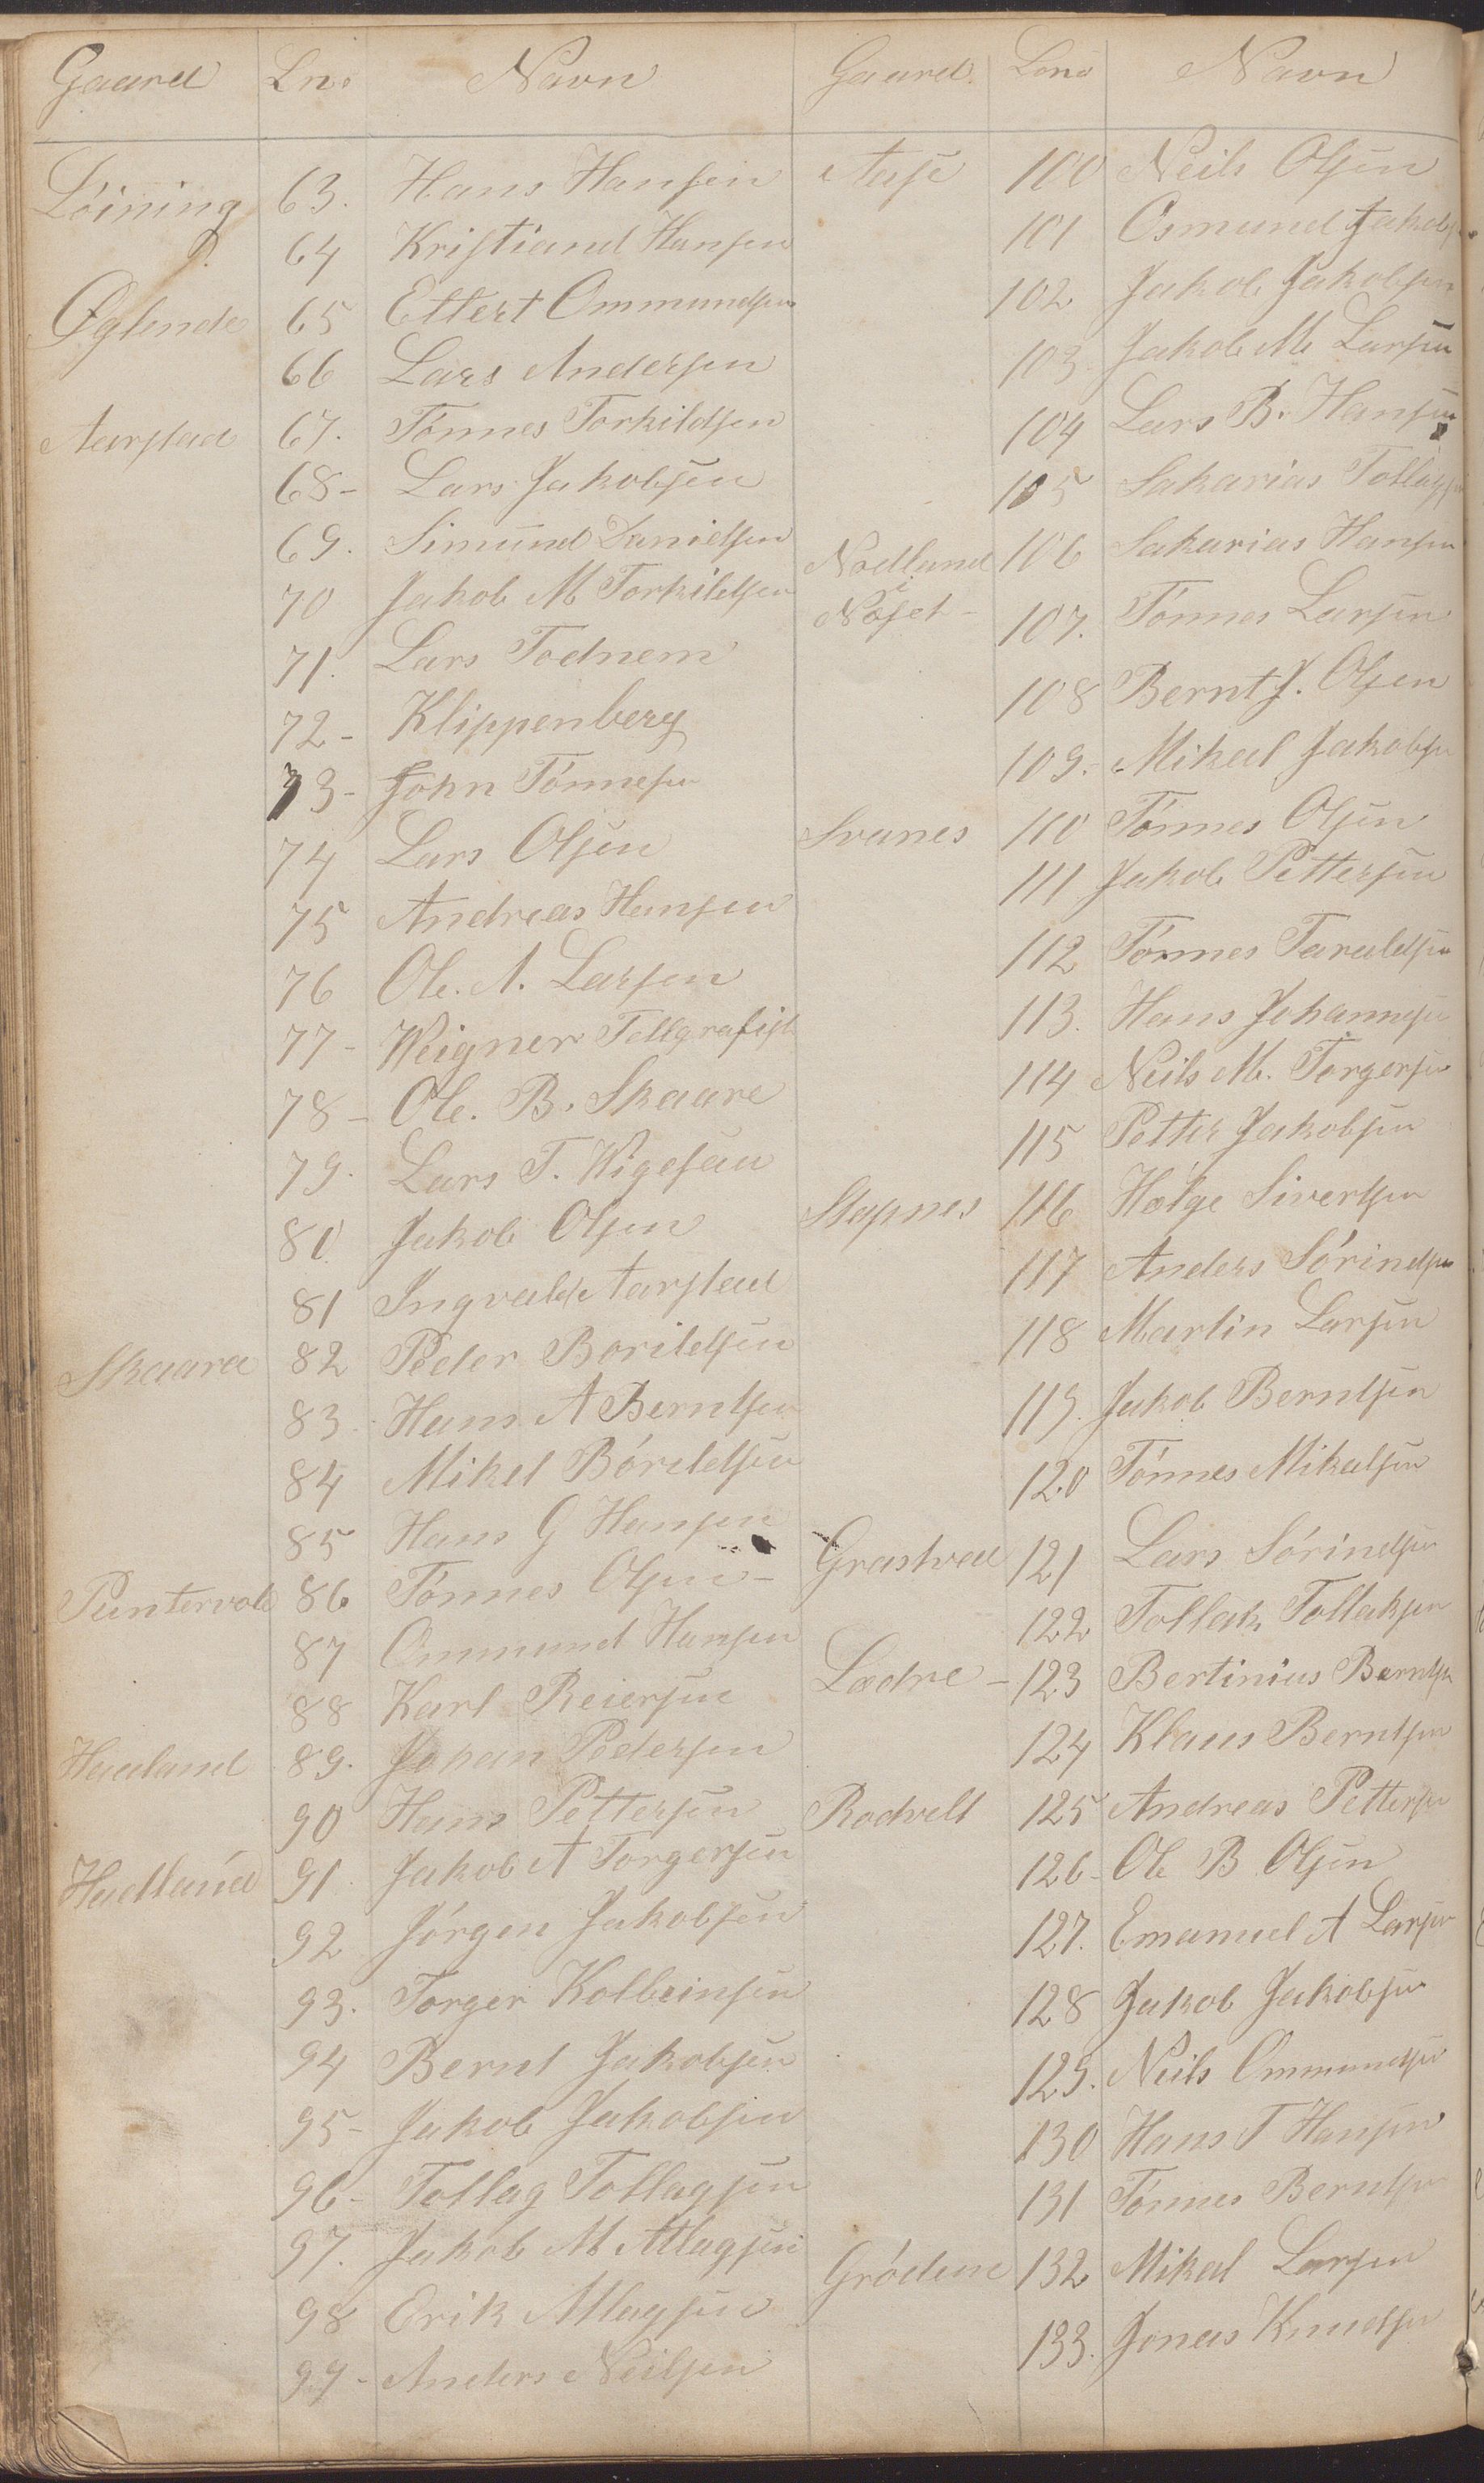 Gaard Lno Navn
Löining 63. Hans Hansen
64 Kristiand Hansen
Øglende 65 Ellert Ommundsen
66 Lars Andersen
Aarstad 67. Tönnes Torkildsen
68- Lars Jakobsen
69. Simund Danielsen
70 Jakob M Torkildsen
71. Lars Todnem
72- Klippenberg
73- John Tönnesen
74 Lars Olsen
75 Andreas Hansen
76 Ole. A. Larsen
77- Weigner Tellgrafist
78- Ole. B. Skaare
79. Lars T. Wigesau
80 Jakob Olsen
81 Ingvald Aarstad
Skaara 82 Peder Borildsen
83. Hans A Berntsen
84 Mikel Börildsen
85 Hans G Hansen
Puntervold 86 Tönnes Olsen-
87 Ommund Hansen
88 Karl Reiersen
Haaland 89. Johan Pedersen
90 Hans Pettersen
Hadland 91. Jakob A Torgersen
92 Jörgen Jakobsen
93. Torger Kolbeinsen
94 Bernt Jakobsen
95- Jakob Jakobsen
96- Tollag Tollagsen
97. Jakob M Atlagsen
98 Erik Atlagsen
99- Anders Neilsen
Gaard Lono Navn
Aase 100 Neils Olsen
101 Osmund Jakobs
102 Jakob Jakobsen
103 Jakob M Larsen
104 Lars B. Hansen
105 Sakarias Tollags
Nodland 106 Sakarias Hansen
i
Noset- 107. Tönnes Larsen
108 Bernt J. Olsen
109.- Mikael Jakobsen
Svanes 110 Tönnes Olsen
111 Jakob Pettersen
112 Tönnes Taraldsen
113. Hans Johannesen
114 Neils M. Torgersen
115 Petter Jakobsen
Stapnes 116 Helge Sivertsen
117 Anders Sörindsen
118 Martin Larsen
119. Jakob Berntsen
120 Tönnes Mikalsen
Grastved 121 Lars Sörindsen
122 Tollak Tollaksen
Lædre - 123 Bertinius Berntsen
124 Klaus Berntsen
Rodvelt 125 Andreas Pettersen
126- Ole B Olsen
127. Emanuel A Larsen
128 Jakob Jakobsen
129. Neils Ommundsen
130 Hans T Hansen
131 Tönnes Berntsen
Grödem 132 Mikal Larsen
133. Jonas Knudsen